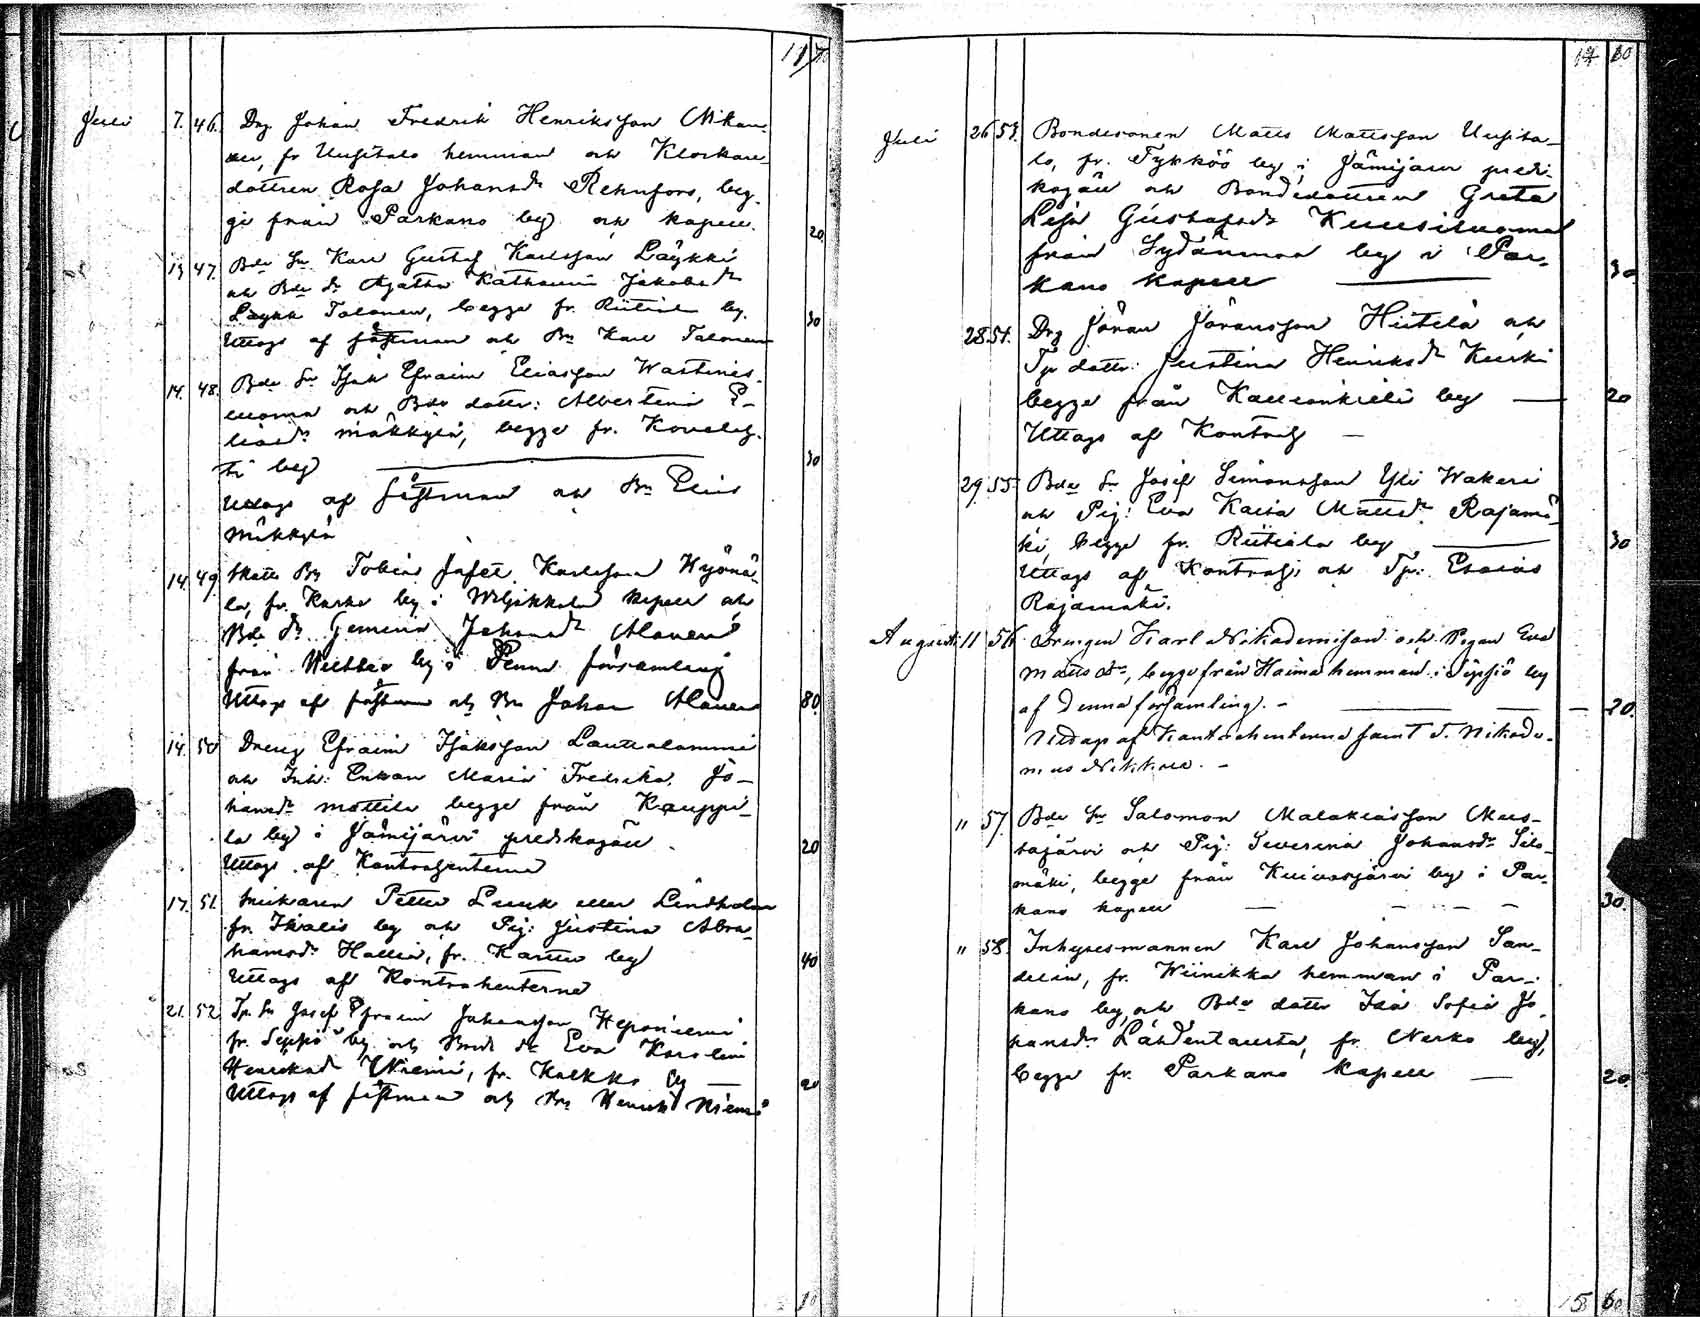 Juli 7. 46. Drg Johan Fredrik Henriksson Nikan-
der, fr Uusitalo hemman och Klockare-
dottren Rosa Johansdr Rehnfors, beg-
ge från Parkano by och kapell. 20.
13 47. Bde Sn Karl Gustaf Karlsson Läykki
och Bde dr Agatha Katharina Jakobsdr
Laykk Talonen, begge fr. by. 30
Uttags af fästman och Bn Karl Talonen
14. 48. Bde Sn Isak Efraim Eliasson Wastines-
och Bde dottr: Albertina E-
liasdr Mäkkylä, begge fr. Kovelah-
ti by 30
Uttags af fästman och Bn Elias
Mäkkylä
14. 49. Skatte Bn Tobias Jafet Karlsson Hyönä-
lä, fr. by i kapell och
Bde dr Johansdr Alanen
från by i församling
Uttags af fästman och Bn Johan Alanen 80.
14. 50 Dreng Efraim Isaksson Lautalammi
och Inh: Enkan Maria Fredrika Jo-
hansdr Mattila begge från Kauppi-
la by i Jämijärvi predikogäll 20
Uttags af Kontrahenterna
17. 51. Petter eller Lindholm
fr. Ikalis by och Pig: Justina Abra-
hamsdr Hallia, fr. by 40
Uttags af Kontrahenterna
21. 52. Tp Sn Josef Efraim Johansson Heponiemi
fr. Seppiö by och Bonde dr Eva Karolina
Henriksdr Niemi, fr. Kalkko by — 20
Uttags af fästman och Bn Henrik Niemi
17 60
Juli 26 53. Bondesonen Matts Mattsson Uusita-
lo, fr. Tykköö by i Jämijärvi predi-
kogäll och Bondedottren Greta
Lisa Gustafsdr Kuusiluoma
från Sydänmaa by i Par-
kano kapell — 30
28 54. Drg Jöran Jöransson Hiitelä och
Tp dottr: Justina Henriksdr Kurki
begge från by — 20
Uttags af Kontrah —
29. 55. Bde Sn Josef Simonsson Yli Wakeri
och Pig: Eva Kaisa Mattsdr Rajamä-
ki, begge fr. Riitiala by — 30
Uttags af Kontrah: och Tp: Esaias
Rajamäki.
Augusti 11 56. Drengen Karl Nikodemisson och Pigan Eva
Mattsdr, begge från Haima hemman i Seppiö by
af denna församling. — 20.
Uttags af Kontrahenterna samt T. Nikode-
mus —
" 57. Bde Sn Salomon Malakiasson Mus-
tajärvi och Pig: Severina Johansdr Silo-
mäki, begge från Kuivasjärvi by i Par-
kano kapell — 30.
" 58. Inhysesmannen Karl Johansson San-
delin, fr. Wiinikka hemman i Par-
kano by, och Bde dottr Ida Sofia Jo-
hansdr Lähdentausta, fr. Nerko by,
begge fr. Parkano kapell — 20.
60